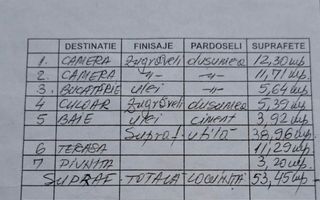 DESTINATIE FINISAJE PARDOSELI SUPRAFETE
1. CAMERA Zugrăveli dusumea 12,30 mp.
2. CAMERA -"- -"- 11,71 mp.
3. BUCATĂRIE ulei -"- 5,64 mp.
4 CULOAR Zugrăveli dusumea 5,39 mp.
5 BAIE ulei ciment 3,92 mp.
Supraf. utilă 38,96 mp.
6 TERASA 11,29 mp.
7 PIVNITA 3,20 mp.
SUPRAF. TOTALA LOCUINTA 53,45 mp.